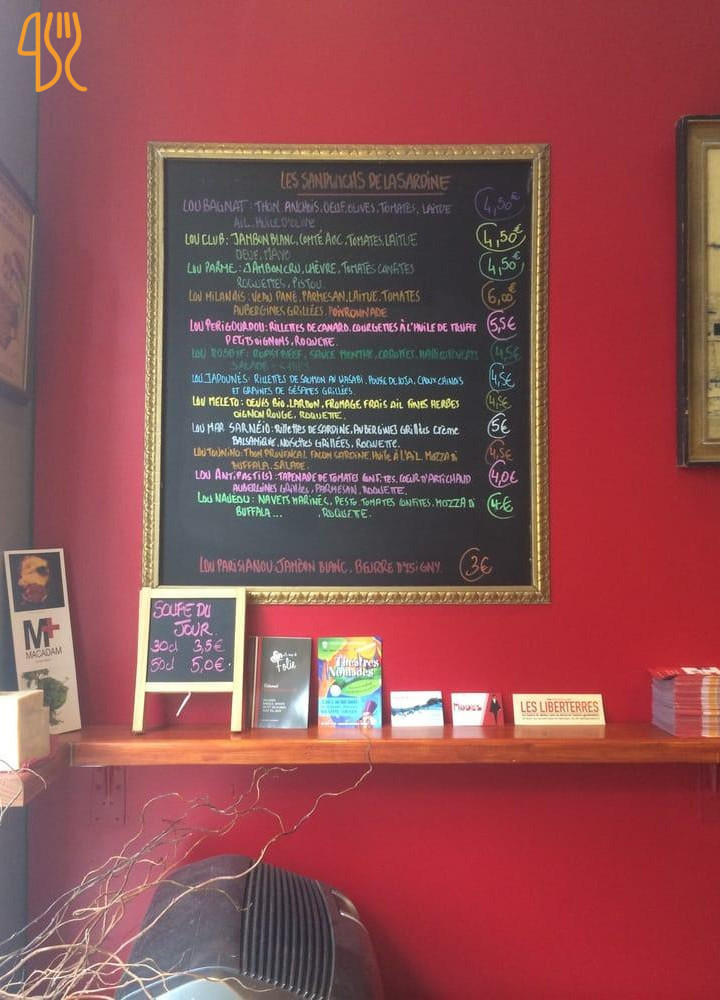 LES SANDWICHS DE LA SARDINE
LOU BAGNAT: THON, ANCHOIS, OEUF, OLIVES, TOMATES, LAITUE 4,50€
AIL, HUILE D'OLIVE
LOU CLUB: JAMBON BLANC, COMTÉ AOC, TOMATES, LAITUE 4,50€
OEUF, MAYO
LOU PARME: JAMBON CRU, CHÈVRE, TOMATES CONFITES 4,50€
ROQUETTES, PISTOU.
LOU MILANAIS: VEAU PANÉ, PARMESAN, LAITUE, TOMATES 6,00€
AUBERGINES GRILLÉES, POIVRONNADE
LOU PERIGOURDOU: RILLETTES DE CANARD, COURGETTES À L'HUILE DE TRUFFE 5,5€
PETITS OIGNONS, ROQUETTE.
LOU ROSBIF: ROAST BEEF, SAUCE MENTHE, CAROTTES, HARICOTS VERTS 4,5€
SALADE
LOU JAPOUNÈS: RILLETTES DE SAUMON AU WASABI, POUSSE DE SOJA, CHOUX CHINOIS 4,5€
ET GRAINES DE SÉSAMES GRILLÉES.
LOU MELETO: OEUFS BIO, LARDON, FROMAGE FRAIS AIL FINES HERBES 4,5€
OIGNON ROUGE, ROQUETTE.
LOU MAR SARNÉIO: RILLETTES DE SARDINE, AUBERGINES GRILLÉES CRÈME 5€
BALSAMIQUE, NOISETTES GRILLÉES, ROQUETTE.
LOU TOUNINO: THON PROVENCAL FACON SARDINE, HUILE À L'AIL, MOZZA DI 4,5€
BUFFALA, SALADE.
LOU ANTIPASTI(S): TAPENADE DE TOMATES CONFITES, COEUR D'ARTICHAUD 4,0€
AUBERGINES GRILLÉES, PARMESAN, ROQUETTE.
LOU NAVEOU: NAVETS MARINÉS, PESTO TOMATES CONFITES, MOZZA DI 4€
BUFFALA... , ROQUETTE.
LOU PARISIANOU: JAMBON BLANC, BEURRE D'ISIGNY. 3€
SOUPE DU
JOUR.
30cl 3,5€
50cl 5,0€
M+
MACADAM
Folie
Théâtres
Nomades
LES LIBERTERRES